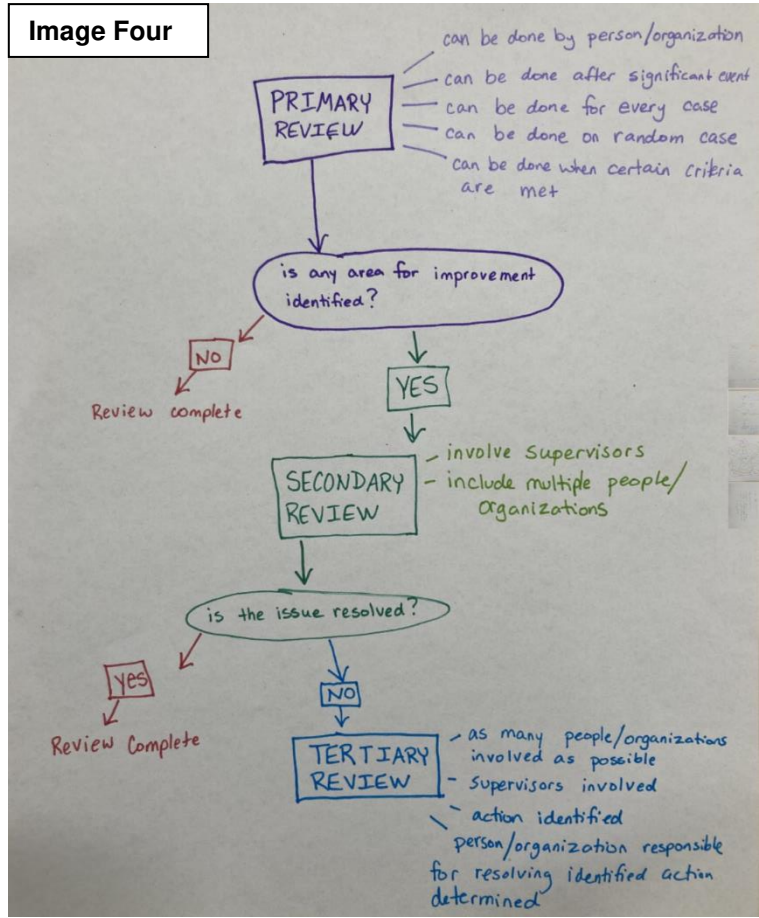 Image Four
can be done by person/organization
can be done after significant event
PRIMARY
REVIEW
can be done for every case
can be done on random case
can be done when certain criteria
are met
is any area for improvement
identified?
NO
Review complete
YES
SECONDARY
REVIEW
involve supervisors
include multiple people/
organizations
is the issue resolved?
Yes
Review Complete
NO
TERTIARY
REVIEW
as many people/organizations
involved as possible
supervisors involved
action identified
person/organization responsible
for resolving identified action
determined